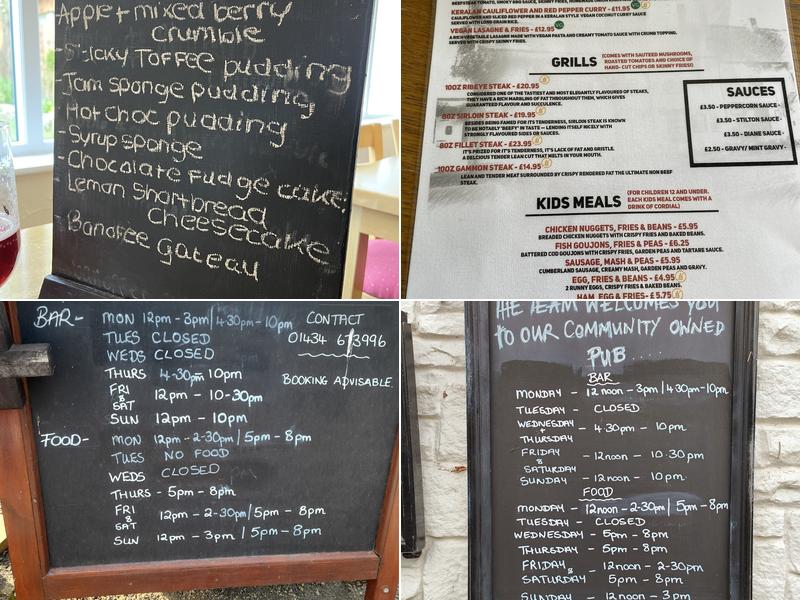 Apple + mixed berry
crumble
- Sticky Toffee pudding
- Jam sponge pudding
Hot choc pudding
- Syrup sponge
- Chocolate fudge cake.
Lemon Shortbread
cheesecake
- Banoffee gateau
BEEFSTEAK TOMATO, SMOKY BBQ SAUCE, SKINNY FRIES, HOMEMADE
KERALAN CAULIFLOWER AND RED PEPPER CURRY - £11.95
CAULIFLOWER AND SLICED RED PEPPER IN A KERALAN STYLE VEGAN COCONUT CURRY SAUCE
SERVED WITH LONG GRAIN RICE.
VEGAN LASAGNE & FRIES - £12.95
A RICH VEGETABLE LASAGNE MADE WITH VEGAN PASTA AND CREAMY TOMATO SAUCE WITH CRUMB TOPPING.
SERVED WITH CRISPY SKINNY FRIES.
GRILLS
(COMES WITH SAUTEED MUSHROOMS,
ROASTED TOMATOES AND CHOICE OF
HAND- CUT CHIPS OR SKINNY FRIES)
10OZ RIBEYE STEAK - £20.95
CONSIDERED ONE OF THE TASTIEST AND MOST ELEGANTLY FLAVOURED OF STEAKS,
THEY HAVE A RICH MARBLING OF FAT THROUGHOUT THEM, WHICH GIVES
GUARANTEED FLAVOUR AND SUCCULENCE.
8OZ SIRLOIN STEAK - £19.95
BESIDES BEING FAMED FOR IT'S TENDERNESS, SIRLOIN STEAK IS KNOWN
TO BE NOTABLY 'BEEFY' IN TASTE – LENDING ITSELF NICELY WITH
STRONGLY FLAVOURED SIDES OR SAUCES.
8OZ FILLET STEAK - £23.95
IT'S PRIZED FOR IT'S TENDERNESS, IT'S LACK OF FAT AND GRISTLE.
A DELICIOUS TENDER LEAN CUT THAT MELTS IN YOUR MOUTH.
10OZ GAMMON STEAK - £14.95
LEAN AND TENDER MEAT SURROUNDED BY CRISPY RENDERED FAT THE ULTIMATE NON BEEF
STEAK.
SAUCES
£3.50 - PEPPERCORN SAUCE -
£3.50 - STILTON SAUCE -
£3.50 - DIANE SAUCE -
£2.50 - GRAVY/ MINT GRAVY -
KIDS MEALS
(FOR CHILDREN 12 AND UNDER.
EACH KIDS MEAL COMES WITH A
DRINK OF CORDIAL)
CHICKEN NUGGETS, FRIES & BEANS - £5.95
BREADED CHICKEN NUGGETS WITH CRISPY FRIES AND BAKED BEANS.
FISH GOUJONS, FRIES & PEAS - £6.25
BATTERED COD GOUJONS WITH CRISPY FRIES, GARDEN PEAS AND TARTARE SAUCE.
SAUSAGE, MASH & PEAS - £5.95
CUMBERLAND SAUSAGE, CREAMY MASH, GARDEN PEAS AND GRAVY.
EGG, FRIES & BEANS - £4.95
2 RUNNY EGGS, CRISPY FRIES & BAKED BEANS
HAM, EGG & FRIES - £5.75
BAR - MON 12pm - 3pm / 4-30pm - 10pm
TUES CLOSED
WEDS CLOSED
THURS 4-30pm 10pm
FRI & SAT 12pm - 10-30pm
SUN 12pm - 10pm
CONTACT
01434 673996
BOOKING ADVISABLE.
FOOD - MON 12pm - 2-30pm / 5pm - 8pm
TUES NO FOOD
WEDS CLOSED
THURS - 5pm - 8pm
FRI & SAT 12pm - 2-30pm / 5pm - 8pm
SUN 12pm - 3pm / 5pm - 8pm
THE TEAM WELCOMES YOU
TO OUR COMMUNITY OWNED
PUB
BAR
MONDAY - 12 noon - 3pm / 4.30pm - 10pm
TUESDAY - CLOSED
WEDNESDAY + THURSDAY - 4.30pm - 10pm
FRIDAY & SATURDAY - 12noon - 10.30pm
SUNDAY - 12noon - 10pm
FOOD
MONDAY - 12noon - 2-30pm / 5pm - 8pm
TUESDAY - CLOSED
WEDNESDAY - 5pm - 8pm
THURSDAY - 5pm - 8pm
FRIDAY & SATURDAY - 12noon - 2-30pm
5pm - 8pm
SUNDAY - 12noon - 3pm